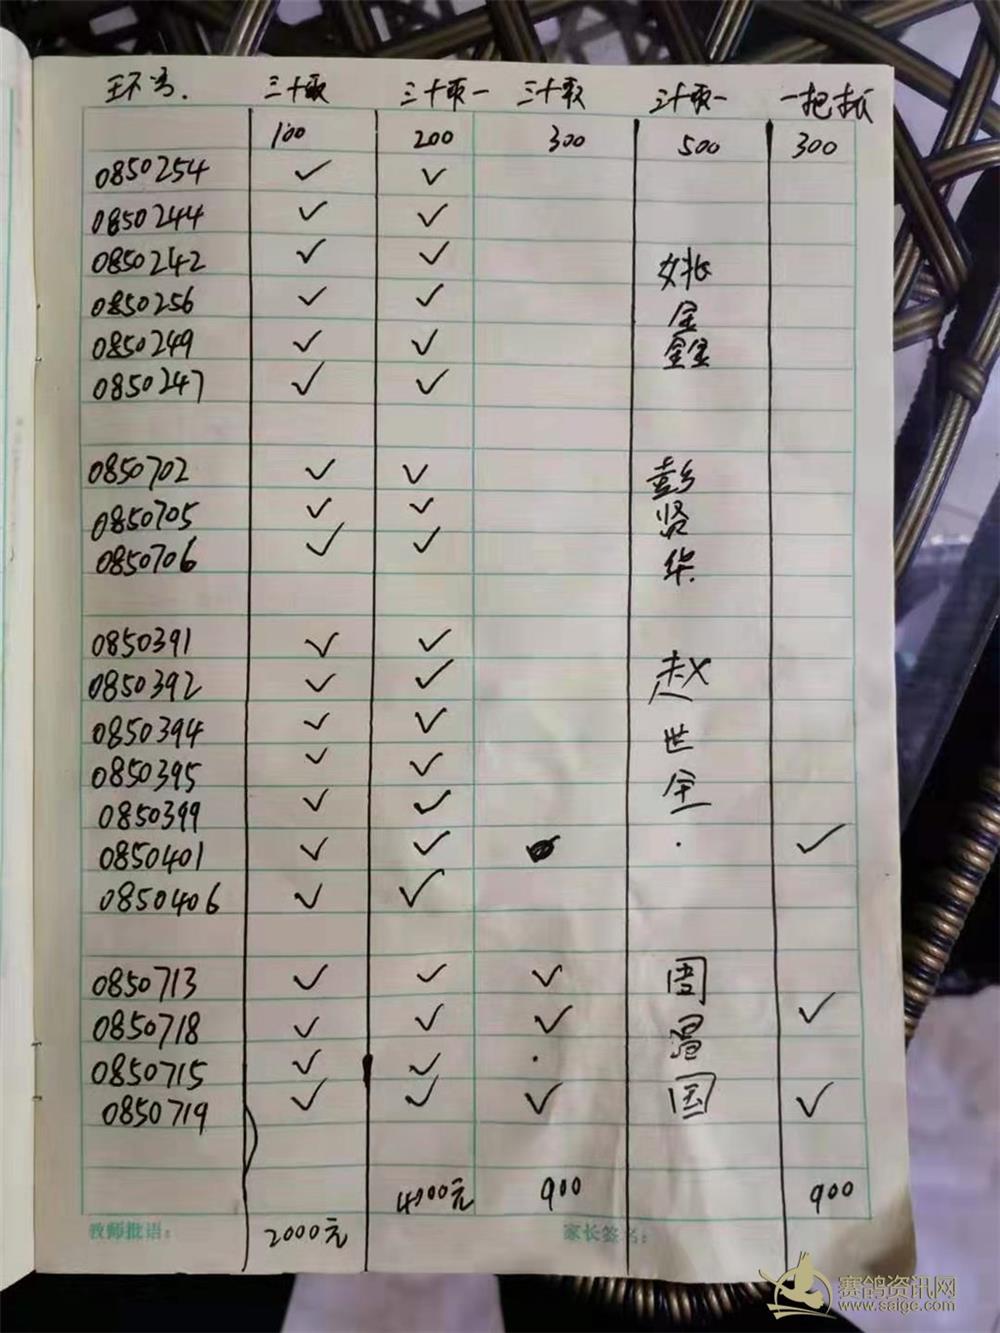 环号. 三十取 三十取一 三十取 三十取一 一把抓
100 200 300 500 300
0850254 ✓ ✓
0850244 ✓ ✓
0850242 ✓ ✓ 姚
0850256 ✓ ✓ 金
0850249 ✓ ✓ 鑫
0850247 ✓ ✓
0850702 ✓ ✓ 彭
0850705 ✓ ✓ 贤
0850706 ✓ ✓ 华.
0850391 ✓ ✓
0850392 ✓ ✓ 赵
0850394 ✓ ✓ 世
0850395 ✓ ✓ 全
0850399 ✓ ✓
0850401 ✓ ✓ ✓
0850406 ✓ ✓
0850713 ✓ ✓ ✓ 周
0850718 ✓ ✓ ✓ ✓
0850715 ✓ ✓
0850719 ✓ ✓ ✓ 国 ✓
4000元 900 900
教师批语: 2000元 家长签名:
赛鸽资讯网
www.saigc.com